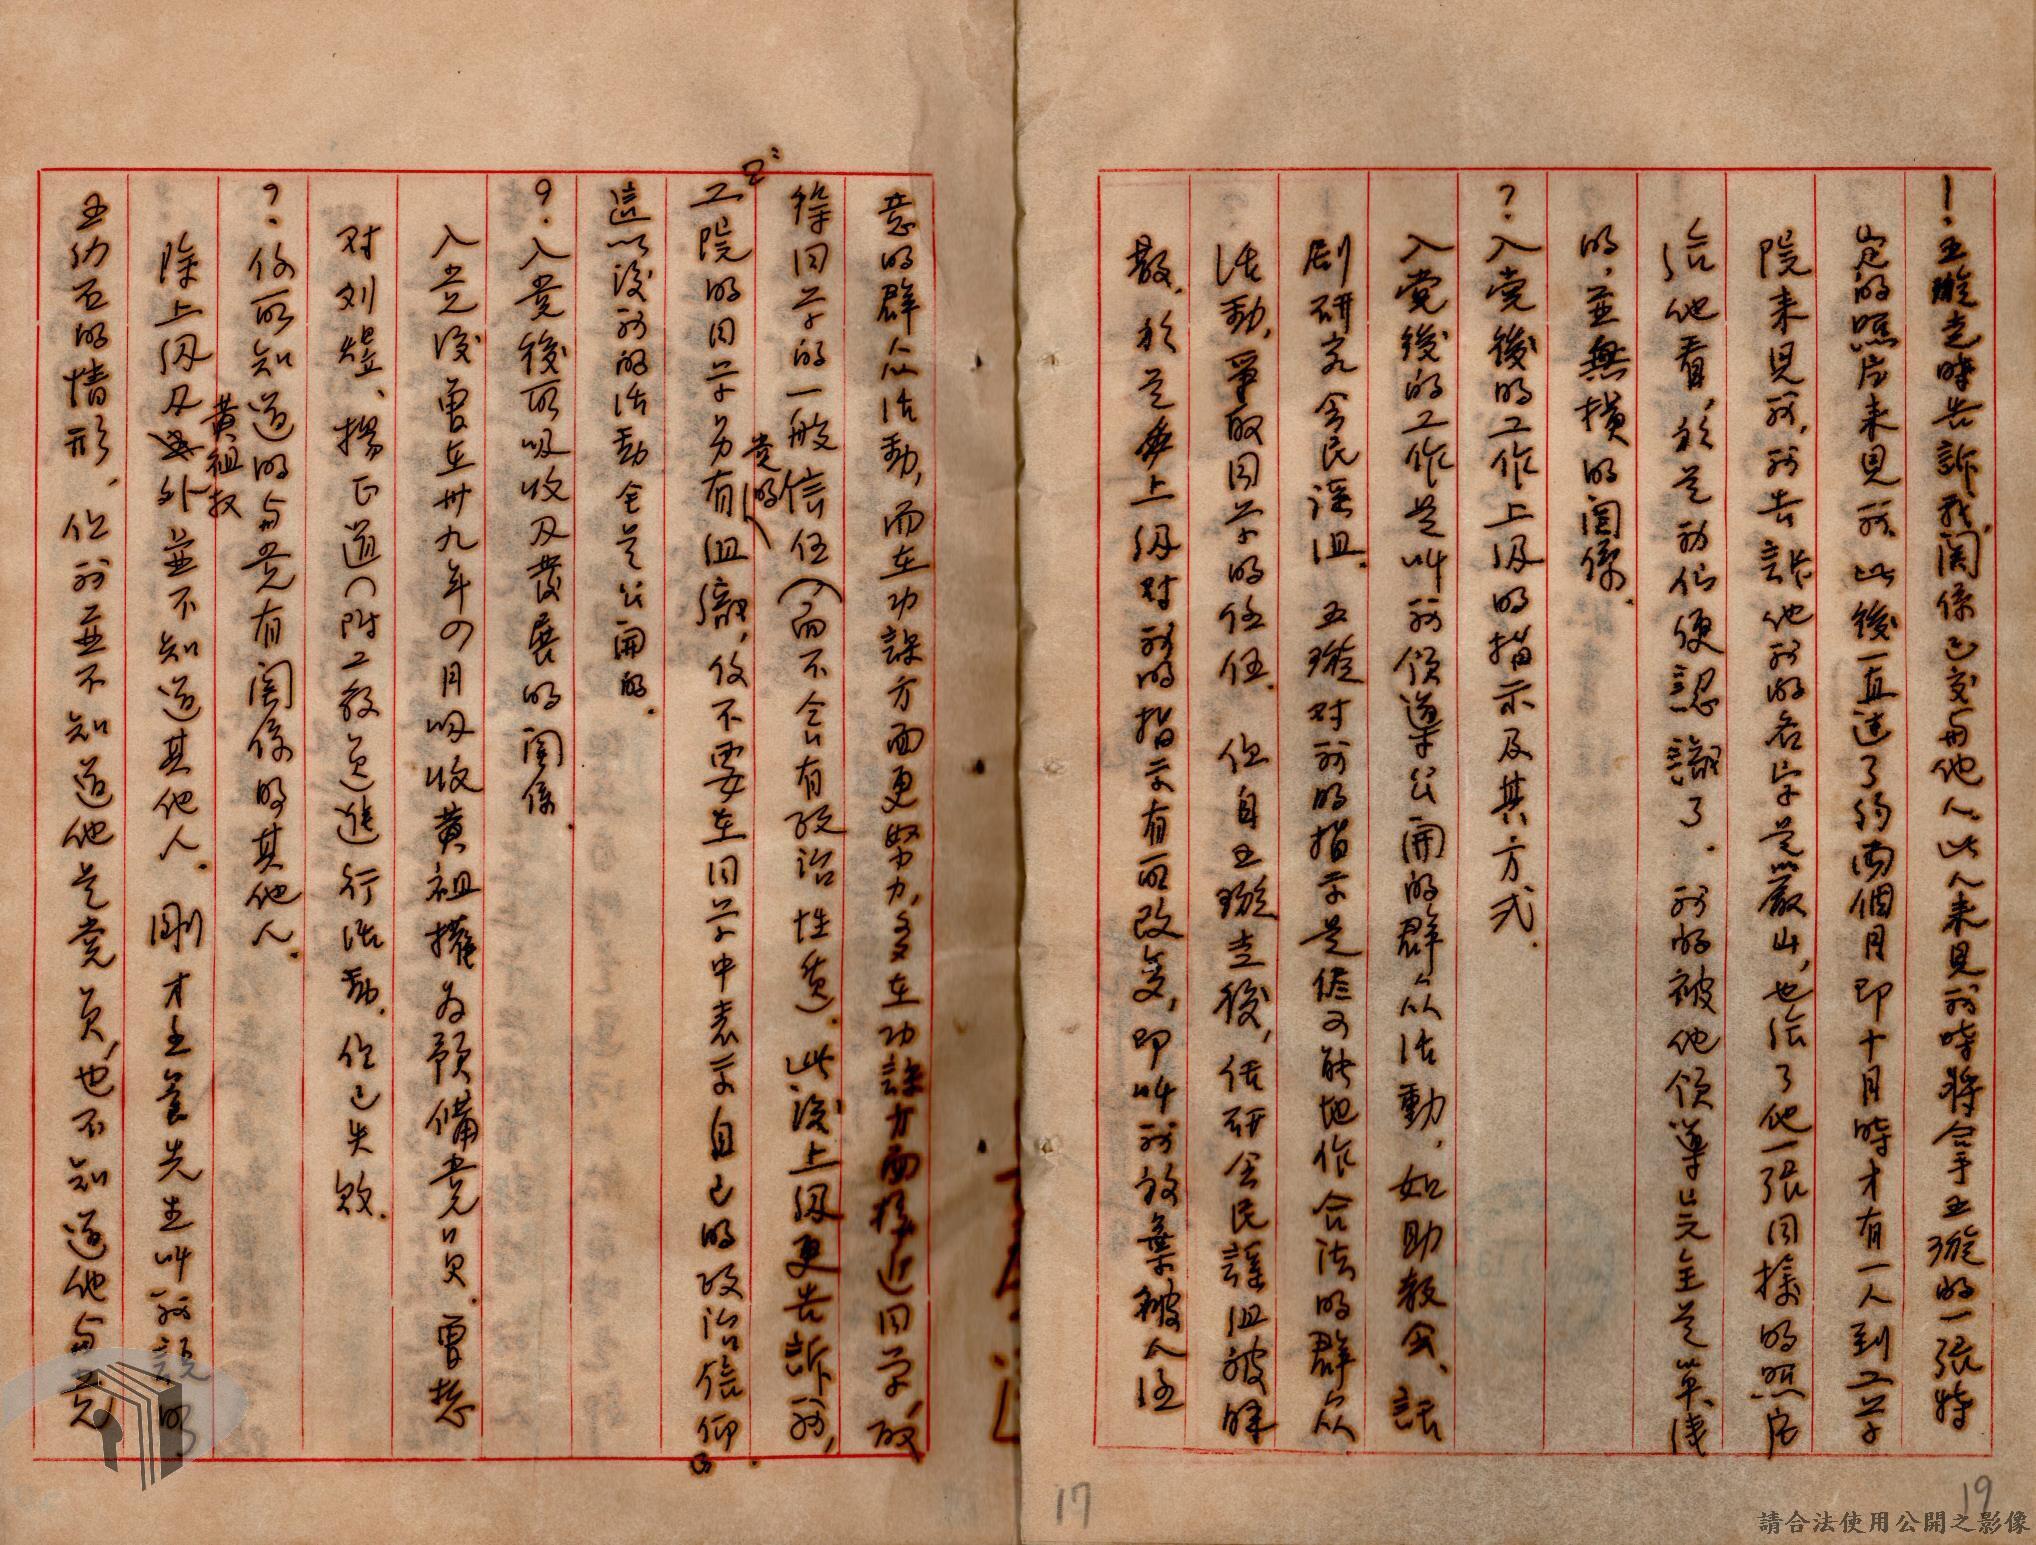 !.王璇走時告訴我,関係已交與他人。此人來見我時將拿手王璇的一張特
定的照片來見我。此後一直達了約両個月即十月時才有一人到工学
院来見我,我告訴他我的名字是以嚴山,也給了他一張同樣的照片
給他看,於是我們便認識了.我的被他領導只完全是單綫
的.並無横的関係.
?.入党後的工作上級的指示及其方式.
入党後的工作是叫我領導公開的群众活動,如助教会、話
劇研究会民謡組.王璇对我的指示是儘可能地作合法的群众
活動,爭取同学的信任.但自王璇走後,話研会民謡組被解
散.於是上級对我的指示有所改変,即叫我放棄被人注
意的群众活動,而在功課方面更努力,多在功課方面接近同学,取
得同学的一般信任(而不会有政治性質).此後上級更告訴我,
党的
工院的同学另有組織,你不要在同学中表示自己的政治信仰.
這以後我的活動全是公開的.
?.入党後所吸收及發展的関係.
入党後曾在卅九年の月吸收黄祖權為預備党員.曾想
对刘煜、楊正道(附工教員)進行活動.但已失敗.
?.你所知道的与党有関係的其他人.
黄祖权
除上級及外並不知道其他人.剛才王養先生叫我說明
王幼石的情形.但我並不知道他是党員,也不知道他与党
17
19
請合法使用公開之影像